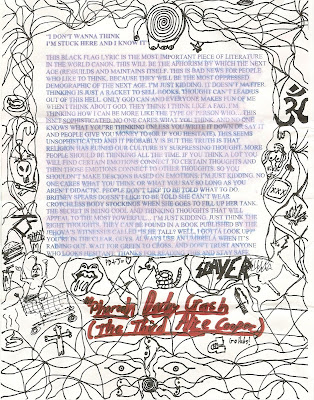 "I DON'T WANNA THINK
I'M STUCK HERE AND I KNOW IT"
THIS BLACK FLAG LYRIC IS THE MOST IMPORTANT PIECE OF LITERATURE
IN THE WORLD CANON. THIS WILL BE THE APHORISM BY WHICH THE NEXT
AGE (RE)BUILDS AND MAINTAINS ITSELF. THIS IS BAD NEWS FOR PEOPLE
WHO LIKE TO THINK, BECAUSE THEY WILL BE THE MOST OPPRESSED
DEMOGRAPHIC OF THE NEXT AGE. I'M JUST KIDDING. IT DOESN'T MATTER.
THINKING IS JUST A RACKET TO SELL BOOKS. THOUGHT CAN'T GET US
OUT OF THIS HELL. ONLY GOD CAN AND EVERYONE MAKES FUN OF ME
WHEN I THINK ABOUT GOD. THEY THINK I THINK LIKE A FAG. I'M
THINKING HOW CAN I BE MORE LIKE THE TYPE OF PERSON WHO... THIS
ISN'T SOPHISTICATED. NO ONE CARES WHAT YOU THINK. AND NO ONE
KNOWS WHAT YOU'RE THINKING UNLESS YOU WRITE IT DOWN OR SAY IT
AND PEOPLE GIVE YOU MONEY TO (OR IF YOU) HESITATE. THIS SEEMS
UNSOPHISTICATED AND IT PROBABLY IS BUT THE TRUTH IS THAT
WE'RE BURNING OUT CULTURALLY BY SUPPRESSING THOUGHT. MORE
PEOPLE SHOULD BE THINKING ALL THE TIME. IF YOU THINK A LOT YOU
WILL FIND CERTAIN EMOTIONS CONNECT TO CERTAIN THOUGHTS AND
THEN THOSE EMOTIONS CONNECT TO OTHER THOUGHTS. SO YOU
SHOULDN'T MAKE DECISIONS BASED ON EMOTIONS. I'M JUST KIDDING. NO
ONE CARES WHAT YOU THINK OR WHAT YOU SAY SO LONG AS YOU
AREN'T DIDACTIC. PEOPLE DON'T LIKE TO BE TOLD WHAT TO DO.
BRITNEY SPEARS DOESN'T LIKE TO BE TOLD SHE CAN'T WEAR
CROTCHLESS BODY STOCKINGS WHEN SHE GOES TO FILL UP HER TANK.
THE SECRET IS BEING COOL AND THINKING THOUGHTS THAT WILL
APPEAL TO THE MOST POWERFUL... I'M JUST KIDDING, JUST THINK THE
RIGHT THOUGHTS. THEY CAN BE FOUND IN A BOOK PUBLISHED BY THE
JEHOVA'S WITNESSES CALLED "IS IT ALL? WELL, I GOTTA LOOK UP."
YOU'RE IN THE CLEAR, GUYS. ALWAYS USE AN UMBRELLA WHEN IT'S
RAINING OUT. WAIT FOR GREEN TO CROSS. AND DON'T TRUST ANYONE
WHO LOOKS HEALTHY. THANKS FOR READING THIS AND STAY SAFE.
XXX
SLAYER
Pharaoh Baby Crash
(The Third Alice Cooper)
(no flubs!)